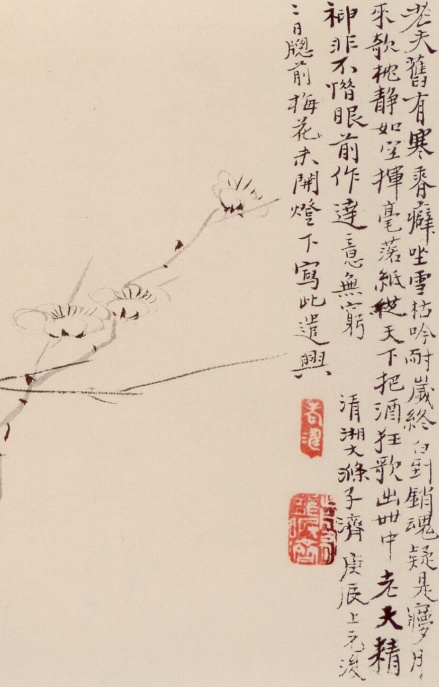 老夫舊有寒香癖坐雪枯吟耐歲終白到銷魂疑是夢月
來欹枕靜如空揮毫落紙縱天下把酒狂歌出世中老夫精
神非不惜眼前作達意無窮 清湘大滌子濟庚辰上元後
二日牕前梅花未開燈下寫此遣興